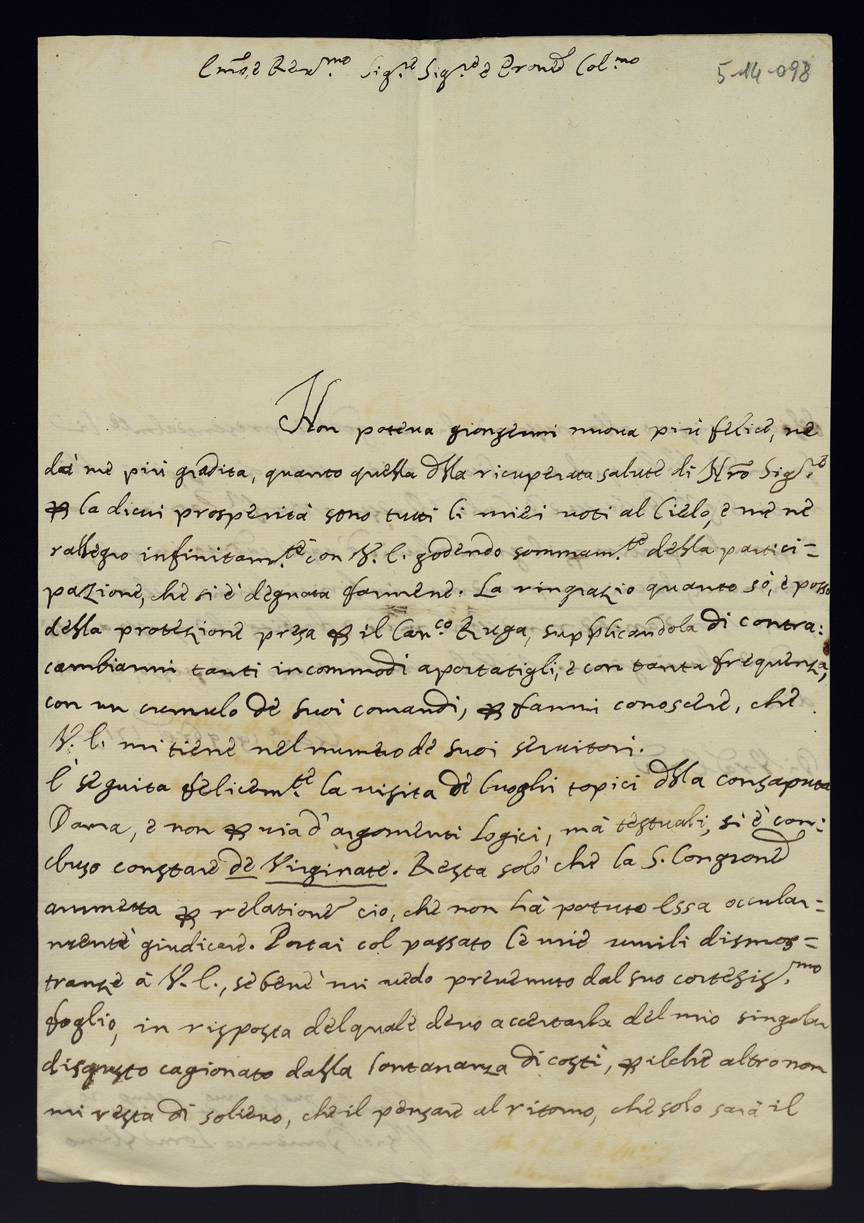 Em̃o, e Rev.mo Sig.re Sig.re e Prone Col.mo
5-14-098
Non poteua giongermi nuoua più felice, ne
da me più gradita, quanto quella dlla ricuperata salute di Nrõ Sig.re
per la dicui prosperità sono tutti li miei uoti al Cielo, e me ne
rallegro infinitam.te con V. E. godendo sommam.te della partici=
pazione, che si è degnata farmene. La ringrazio quanto sò, e posso
della protezione presa per il Can.co Ruga, supplicandola di contra:
cambiarmi tanti incommodi aportatigli, e con tanta frequenza,
con un cumulo de suoi comandi, per farmi conoscere, che
V. E. mi tiene nel numero de suoi seruitori.
È seguita felicem.te la uisita de luoghi topici dlla consaputa
Dama, e non per uia d'argomenti Logici, mà testuali, si è con:
cluso constare de Virginitate. Resta solo che la S. Congrone
ammetta per relatione cio, che non hà potuto Essa occular=
mente giudicare. Portai col passato le mie umili dismos=
tranze à V. E., se bene mi uedo preuenuto dal suo cortesiss.mo
foglio, in risposta del quale deuo accertarla del mio singolar
disgusto cagionato dalla lontananza di costì, per ilche altro non
mi resta di solieuo, che il pensare al ritorno, che solo sarà il